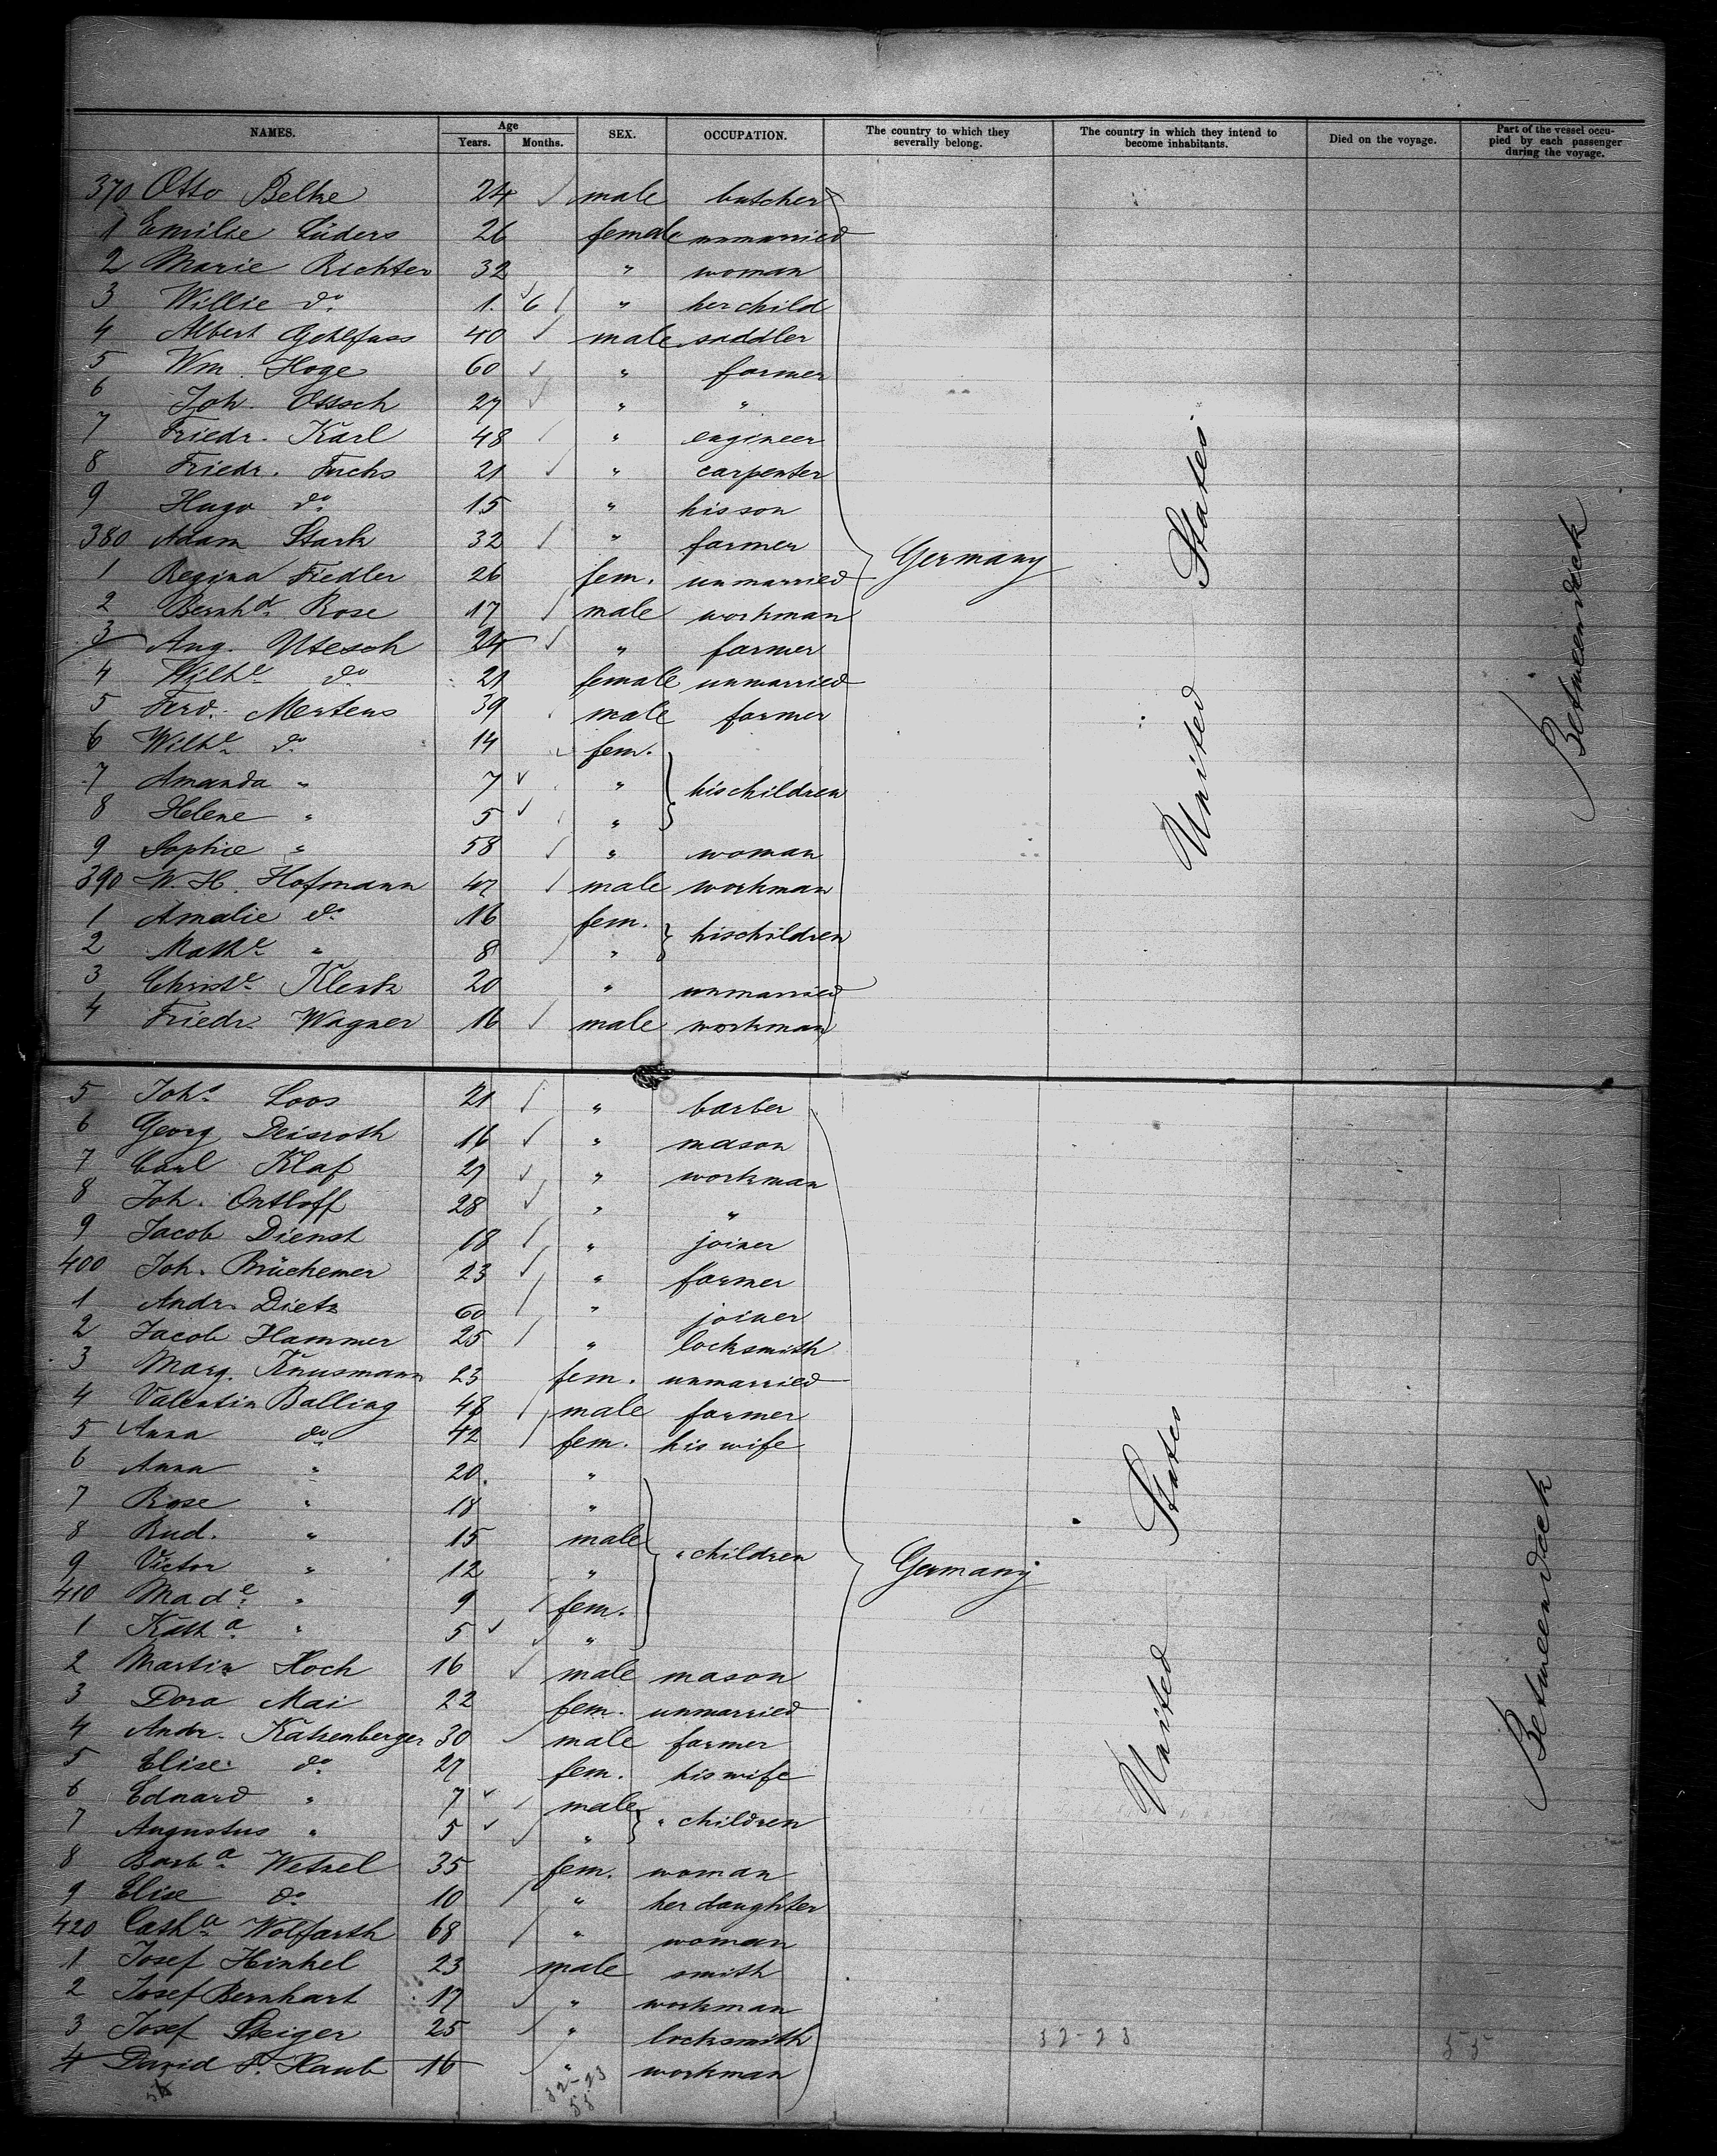 NAMES. Age Years. Months. SEX. OCCUPATION. The country to which they severally belong. The country in which they intend to become inhabitants. Died on the voyage. Part of the vessel occupied by each passenger during the voyage.
370 Otto Belke 24 male butcher
1 Emilie Lüders 26 female unmarried
2 Marie Richter 32 " woman
3 Willie do 1. 6 " her child
4 Albert 40 male saddler
5 Wm. Hoge 60 " farmer
6 Joh. Ossoch 27 " "
7 Friedr. Karl 48 " engineer
8 Friedr. Fuchs 21 " carpenter
9 Hugo do 15 " his son
380 Adam Stark 32 " farmer
1 Regina Fiedler 26 fem. unmarried
2 Bernhd. Rose 17 male workman
3 Aug. Utesch 24 " farmer
4 Wilhe do 21 female unmarried
5 Ferd. Mertens 39 male farmer
6 Wilhe do 14 fem.
7 Amanda " 7 " his children
8 Helene " 5 "
9 Sophie " 58 " woman
390 W. H. Hofmann 47 male workman
1 Amalie do 16 fem. his children
2 Mathe " 8 "
3 Christe Klenk 20 " unmarried
4 Friedr. Wagner 16 male workman
Germany
United States
Betweendeck
5 Johs Loos 21 " barber
6 Georg Deisroth 16 " mason
7 Carl Klaf 27 " workman
8 Joh. Ontloff 28 " "
9 Jacob Dienst 18 " joiner
400 Joh. Brüchemer 23 " farmer
1 Andr. Dietz 60 " joiner
2 Jacob Hammer 25 " locksmith
3 Marg. Knusmann 23 fem. unmarried
4 Valentin Balling 48 male farmer
5 Anna do 42 fem. his wife
6 Anna " 20. "
7 Rose " 18 "
8 Rud. " 15 male " children
9 Victor " 12 "
410 Made " 9 fem.
1 Katha " 5 "
2 Martin Hoch 16 male mason
3 Dora Mai 22 fem. unmarried
4 Andr. Katzenberger 30 male farmer
5 Elise do 27 fem. his wife
6 Eduard " 7 male " children
7 Augustus " 5 "
8 Barba Wetzel 35 fem. woman
9 Elise do 10 " her daughter
420 Catha Wolfarth 68 " woman
1 Josef Hinkel 23 male smith
2 Josef Bernhart 17 " workman
3 Josef Steiger 25 " locksmith
4 David F. Haub 16 " workman
Germany
United States
Betweendeck
32-23
55
32-23